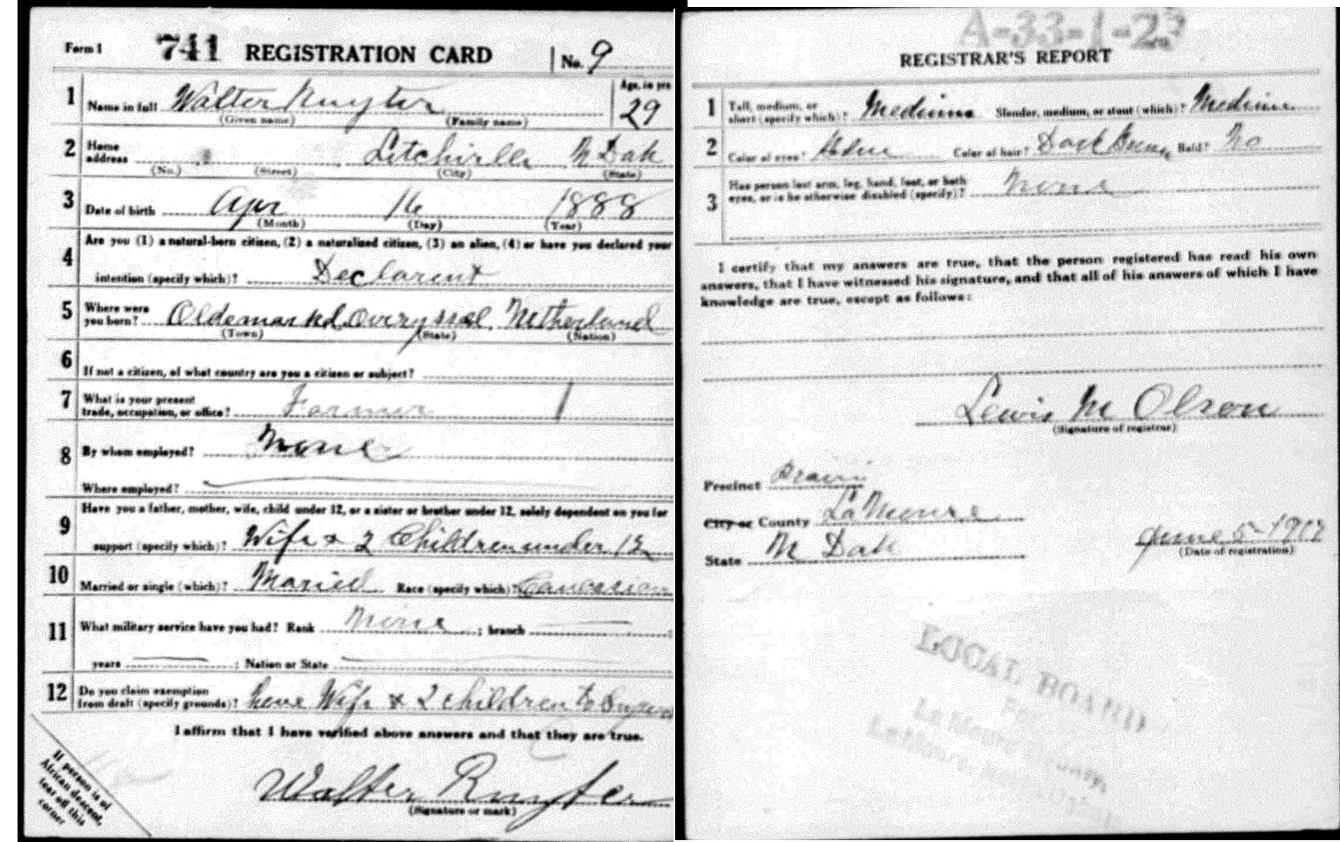 Form 1 741 REGISTRATION CARD No. 9
1 Name in full Walter Ruyter Age, in yrs. 29
(Given name) (Family name)
2 Home address Litchville N Dak
(No.) (Street) (City) (State)
3 Date of birth Apr 16 1888
(Month) (Day) (Year)
4 Are you (1) a natural-born citizen, (2) a naturalized citizen, (3) an alien, (4) or have you declared your
intention (specify which)? Declarent
5 Where were you born? Oldemarkd Overyssel, Netherland
(Town) (State) (Nation)
6 If not a citizen, of what country are you a citizen or subject?
7 What is your present trade, occupation, or office? Farmer 1
8 By whom employed? None
Where employed?
9 Have you a father, mother, wife, child under 12, or a sister or brother under 12, solely dependent on you for
support (specify which)? Wife & 2 Children under 12
10 Married or single (which)? Maried Race (specify which)? Caucasian
11 What military service have you had? Rank None ; branch ;
years ; Nation or State
12 Do you claim exemption from draft (specify grounds)? have Wife & 2 children to
I affirm that I have verified above answers and that they are true.
Walter Ruyter
(Signature or mark)
If person is of
African descent,
tear off this
corner
A-33-1-23
REGISTRAR'S REPORT
1 Tall, medium, or short (specify which)? Medium Slender, medium, or stout (which)? Medium
2 Color of eyes? Blue Color of hair? Dark Brown Bald? No
3 Has person lost arm, leg, hand, foot, or both eyes, or is he otherwise disabled (specify)? None
I certify that my answers are true, that the person registered has read his own
answers, that I have witnessed his signature, and that all of his answers of which I have
knowledge are true, except as follows:
Lewis M Olson
(Signature of registrar)
Precinct
City or County La Moure
State N Dak
June 5 - 1917
(Date of registration)
LOCAL BOARD
For
La Moure County,
La Moure, North Dakota